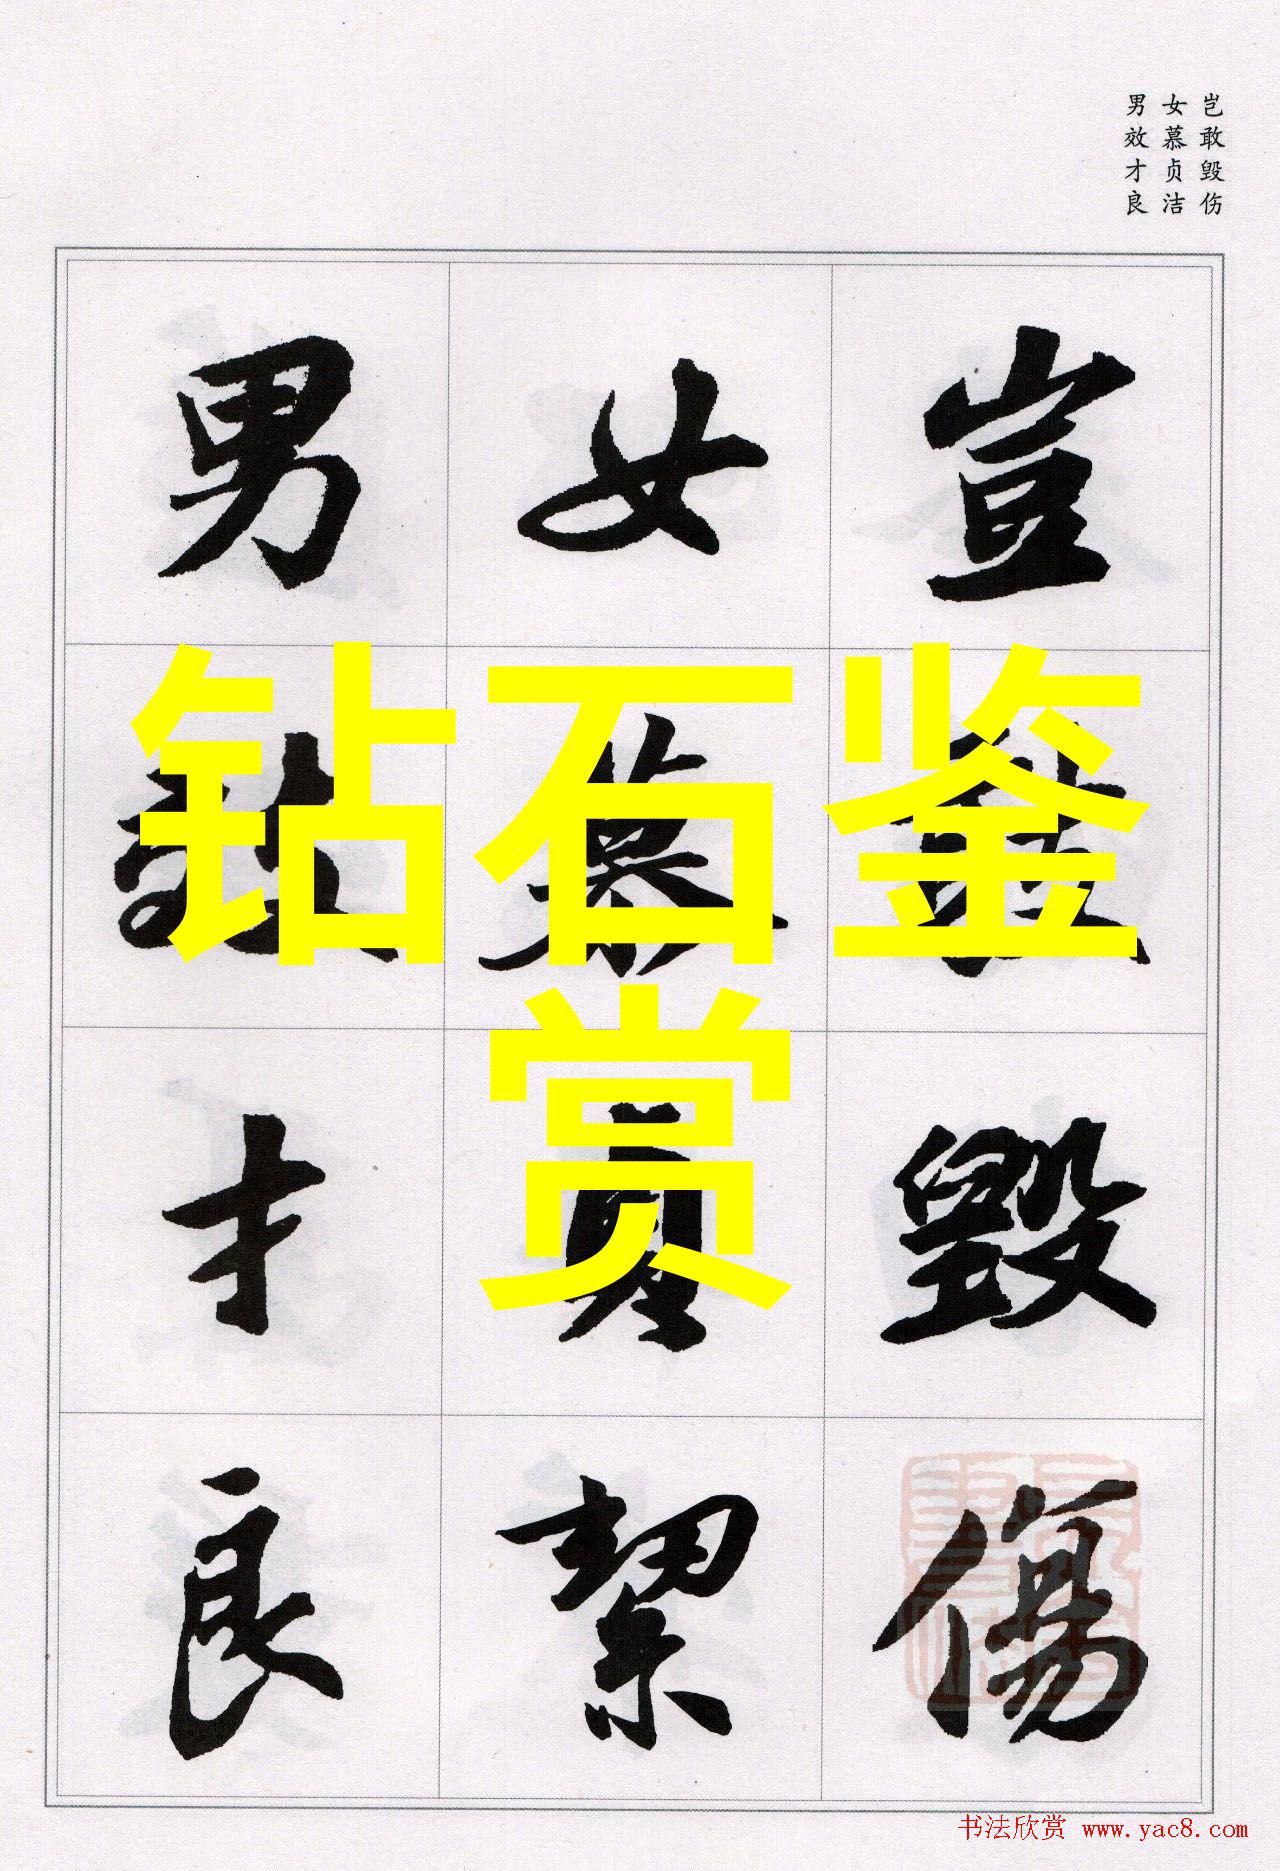 岂敢毁伤
女慕贞洁
男效才良
豈敢毀傷
女慕貞絜
男效才良
钻石鉴
赏
书法欣赏 www.yac8.com